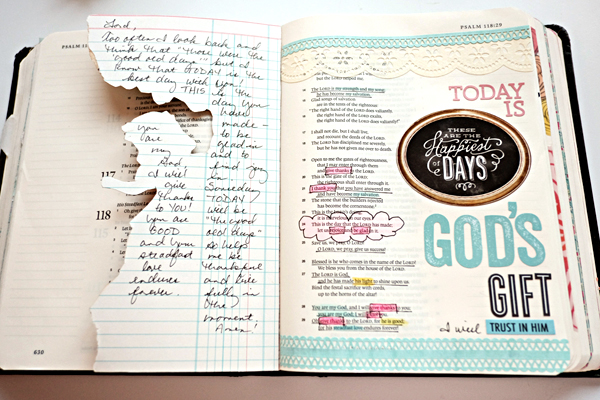 PSALM 116:12
Lord,
Too often I look back and
think that "those were the
"good old days"" but I
know that TODAY is the
best day with You!
THIS is the
day You
have
made
to be
glad in
and to
find joy
in.
Someday
TODAY
will be
"the good
old days"
so help
me be
thankful
and live
fully in
this
moment,
Amen!
You
are
my
God
I will
give
thanks
to YOU!
You are
GOOD
and Your
steadfast
love
endures
forever.
117
118
630
PSALM 118:29
but the LORD helped me.
The LORD is my strength and my song;
he has become my salvation.
Glad songs of salvation
are in the tents of the righteous:
"The right hand of the LORD does valiantly,
the right hand of the LORD exalts,
the right hand of the LORD does valiantly!"
I shall not die, but I shall live,
and recount the deeds of the LORD.
The LORD has disciplined me severely,
but he has not given me over to death.
Open to me the gates of righteousness,
that I may enter through them
and give thanks to the LORD.
This is the gate of the LORD;
the righteous shall enter through it.
I thank you that you have answered me
and have become my salvation.
The stone that the builders rejected
has become the cornerstone.
This is the LORD's doing;
it is marvelous in our eyes.
This is the day that the LORD has made;
let us rejoice and be glad in it.
Save us, we pray, O LORD!
O LORD, we pray, give us success!
Blessed is he who comes in the name of the LORD!
We bless you from the house of the LORD.
The LORD is God,
and he has made his light to shine upon us.
Bind the festal sacrifice with cords,
up to the horns of the altar!
You are my God, and I will give thanks to you;
you are my God; I will
Oh give thanks to the LORD, for he is good;
for his steadfast love endures forever!
TODAY
IS
THESE
ARE THE
Happiest
of DAYS
GOD'S
GIFT
I will
TRUST IN HIM